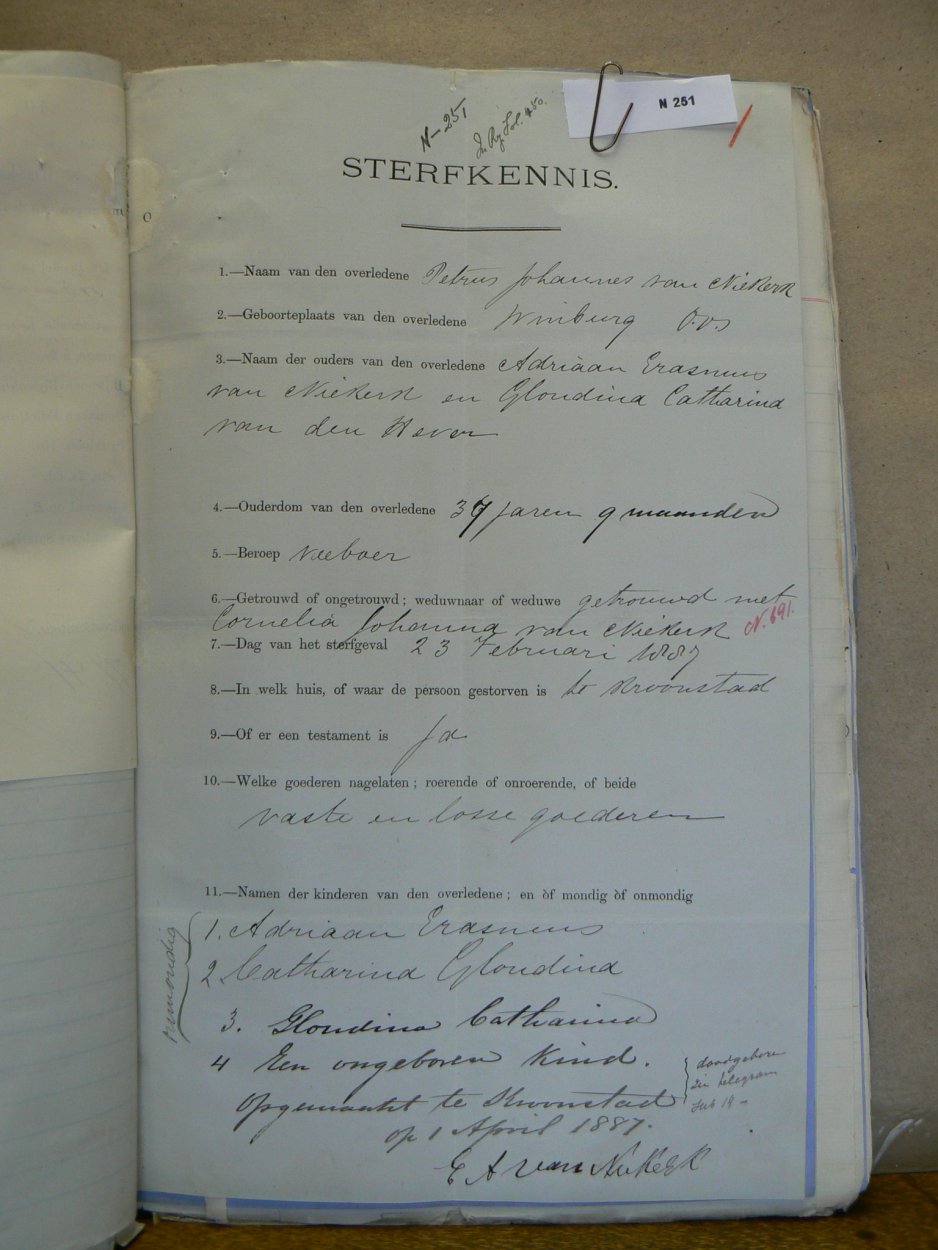 N 251
N-251
STERFKENNIS.
1.—Naam van den overledene Petrus Johannes van Niekerk
2.—Geboorteplaats van den overledene Winburg O.V.S
3.—Naam der ouders van den overledene Adriaan Erasmus
van Niekerk en Gloudina Catharina
van den Hever
4.—Ouderdom van den overledene 37 jaren 9 maanden
5.—Beroep veeboer
6.—Getrouwd of ongetrouwd; weduwnaar of weduwe getrouwd met
Cornelia Johanna van Niekerk N. 691.
7.—Dag van het sterfgeval 23 Februari 1887
8.—In welk huis, of waar de persoon gestorven is te Kroonstad
9.—Of er een testament is Ja
10.—Welke goederen nagelaten; roerende of onroerende, of beide
vaste en losse goederen
11.—Namen der kinderen van den overledene; en òf mondig òf onmondig
onmondig
1. Adriaan Erasmus
2. Catharina Gloudina
3. Gloudina Catharina
4 Een ongeboren Kind.
doodgeboren
zie telegram
Opgemaakt te Kroonstad
op 1 April 1887.
E A van Niekerk